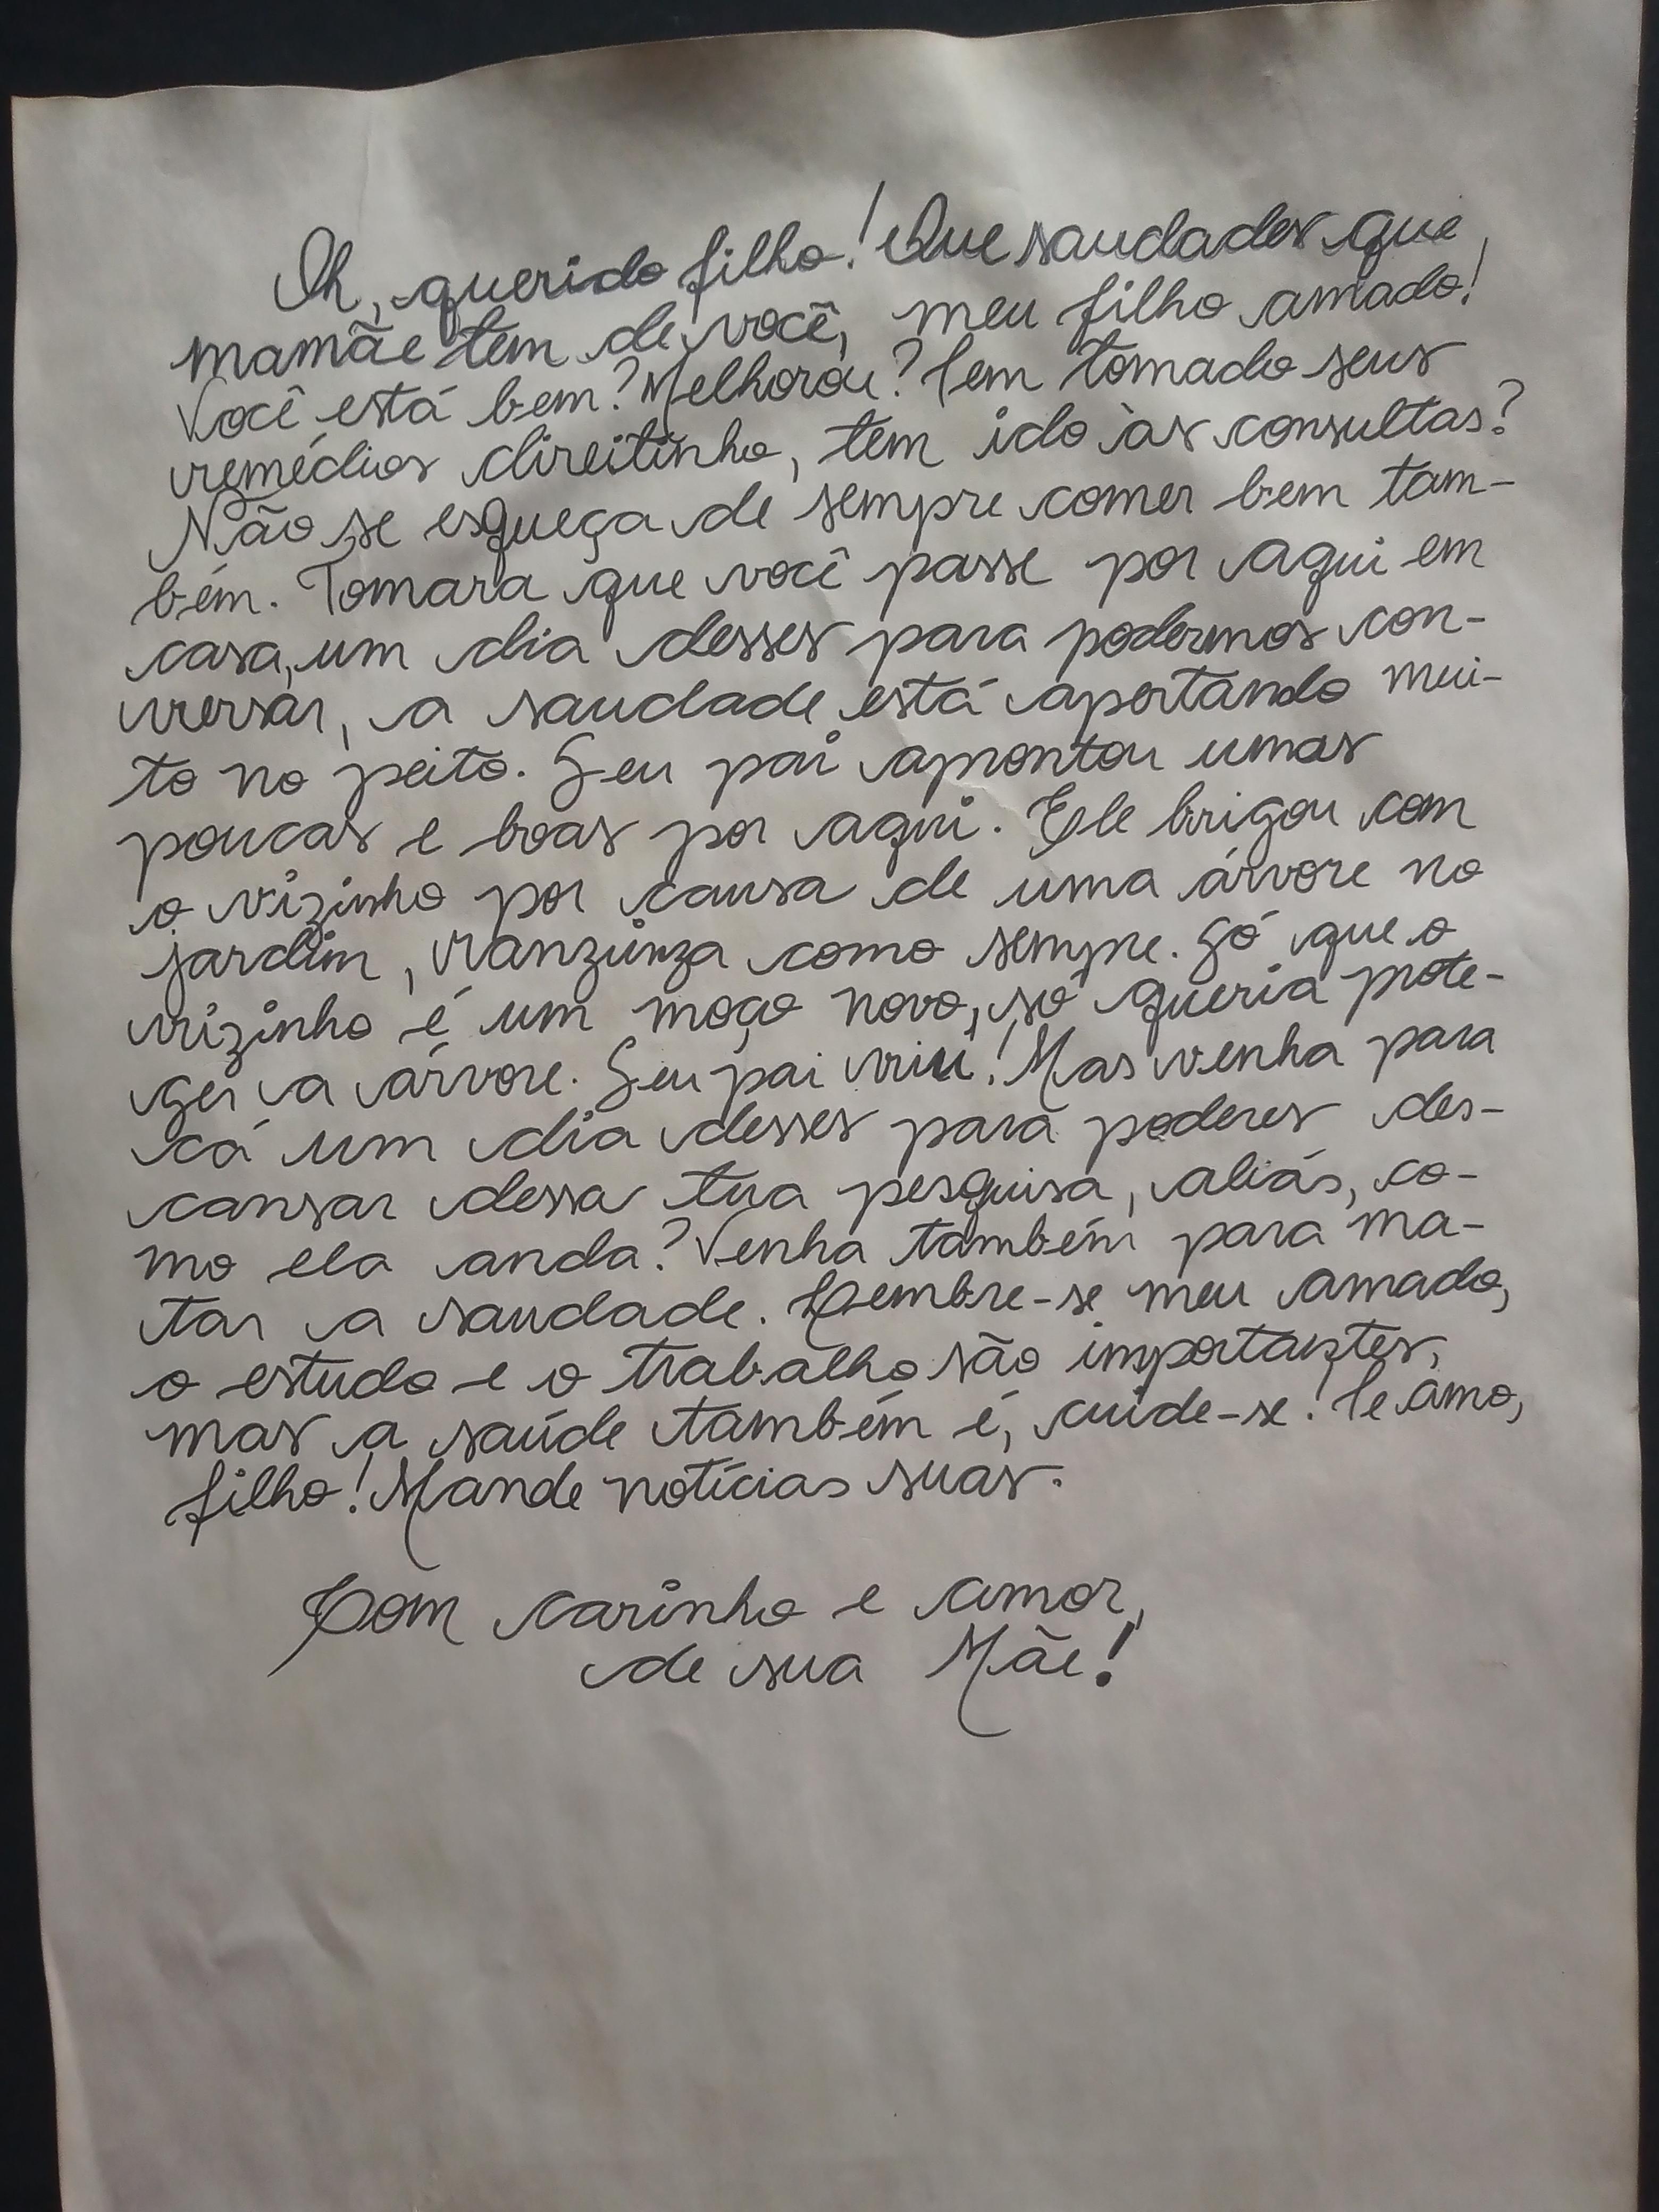 Oh, querido filho! Que saudades que
mamãe tem de você, meu filho amado!
Você está bem? Melhorou? Tem tomado seus
remédios direitinho, tem ido às consultas?
Não se esqueça de sempre comer bem tam-
bém. Tomara que você passe por aqui em
casa, um dia desses para podermos con-
versar, a saudade está apertando mui-
to no peito. Seu pai aprontou umas
poucas e boas por aqui. Ele brigou com
o vizinho por causa de uma árvore no
jardim, ranzinza como sempre. Só que o
vizinho é um moço novo, só queria prote-
ger a árvore. Seu pai viu! Mas venha para
cá um dia desses para poderes des-
cansar dessa tua pesquisa, aliás, co-
mo ela anda? Venha também para ma-
tar a saudade. Lembre-se meu amado,
o estudo e o trabalho são importantes,
mas a saúde também é, cuide-se! Te amo,
filho! Mande notícias suas.
Com carinho e amor,
de sua Mãe!